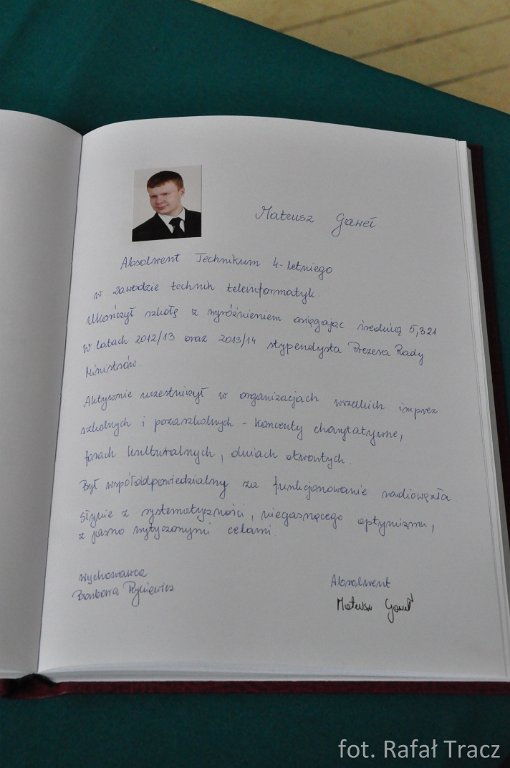 Mateusz Gaweł
Absolwent Technikum 4-letniego
w zawodzie technik teleinformatyk
Ukończył szkołę z wyróżnieniem osiągając średnią 5,321
w latach 2012/13 oraz 2013/14 stypendysta Prezesa Rady
Ministrów
Aktywnie uczestniczył w organizacjach wszelkich imprez
szkolnych i pozaszkolnych - koncerty charytatywne,
feriach kulturalnych, dniach otwartych.
Był współodpowiedzialny za funkcjonowanie radiowęzła
Słynie z systematyczności, niegasnącego optymizmu,
z jasno wytyczonymi celami.
Wychowawca
Barbara
Absolwent
Mateusz Gaweł
fot. Rafał Tracz